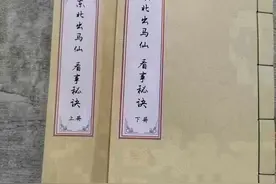 东北出马仙 看事秘诀
上册
北出马仙 看事秘诀
下册